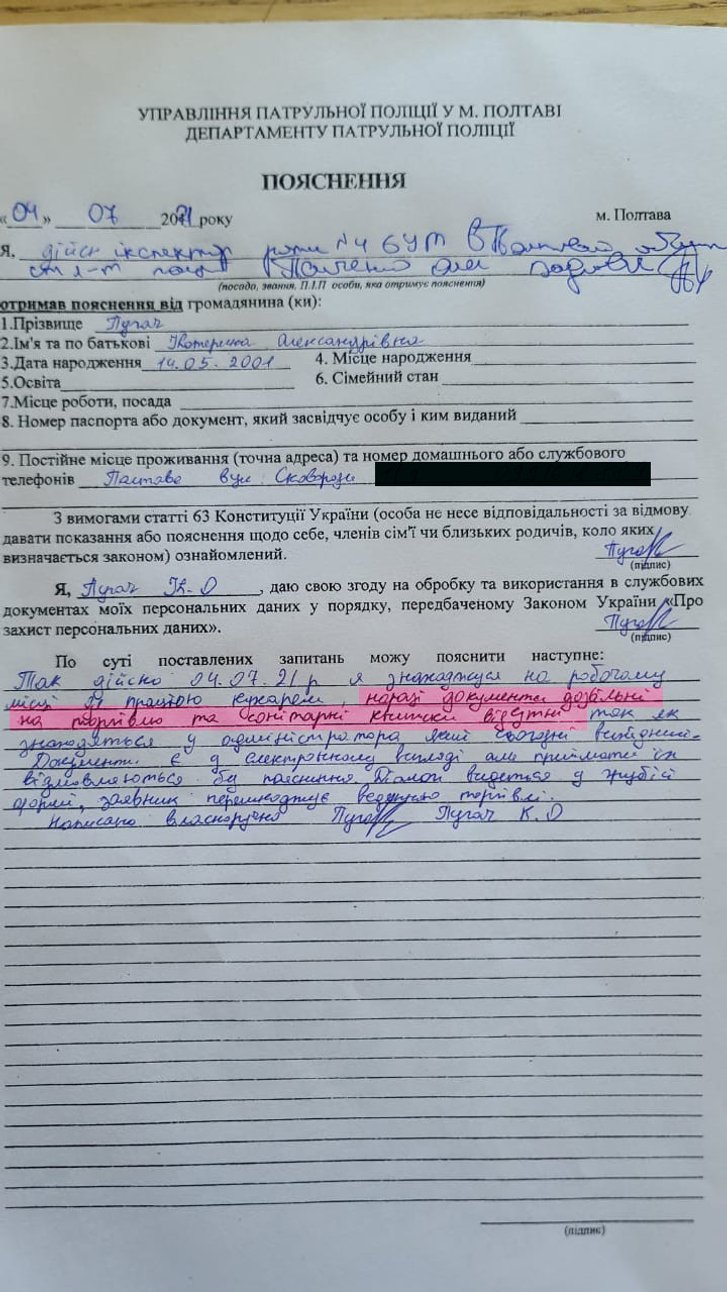 УПРАВЛІННЯ ПАТРУЛЬНОЇ ПОЛІЦІЇ У М. ПОЛТАВІ
ДЕПАРТАМЕНТУ ПАТРУЛЬНОЇ ПОЛІЦІЇ
ПОЯСНЕННЯ
«04» 07 2021 року м. Полтава
Я, інспектор роти №4 БУПП в Полтавській
(посада, звання, П.І.П особи, яка отримує пояснення)
отримав пояснення від громадянина (ки):
1.Прізвище Пугач
2.Ім'я та по батькові Катерина Олександрівна
3.Дата народження 14.05.2001 4. Місце народження
5.Освіта 6. Сімейний стан
7.Місце роботи, посада
8. Номер паспорта або документ, який засвідчує особу і ким виданий
9. Постійне місце проживання (точна адреса) та номер домашнього або службового
телефонів Полтава вул Сковороди
З вимогами статті 63 Конституції України (особа не несе відповідальності за відмову
давати показання або пояснення щодо себе, членів сім'ї чи близьких родичів, коло яких
визначається законом) ознайомлений.
(підпис)
Я, Пугач К.О, даю свою згоду на обробку та використання в службових
документах моїх персональних даних у порядку, передбаченому Законом України «Про
захист персональних даних».
(підпис)
По суті поставлених запитань можу пояснити наступне:
Так дійсно 04.07.21р я знаходжуся на робочому
місці працюю кухарем, наразі документи дозвільні
на торгівлю та санітарні книжки відсутні так як
знаходяться у адміністратора який сьогодні вихідний.
Документи є в електронному вигляді але приймати їх
відмовляються без пояснення. Діалог ведеться у грубій
формі, заявник перешкоджує веденню торгівлі.
Написано власноручно Пугач К.О
(підпис)